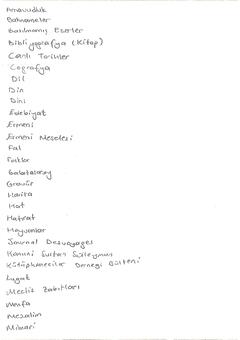 Arnavutluk
Bahnameler
Basılmamış Eserler
Bibliyografya (Kitap)
Canlı Tarihler
Coğrafya
Dil
Din
Dini
Edebiyat
Ermeni
Ermeni Meselesi
Fal
Folklor
Galatasaray
Gravür
Harita
Hat
Hatırat
Hayvanlar
Journal Des Voyages
Kanuni Sultan Süleyman
Kütüphaneciler Derneği Bülteni
Lugat
Meclis Zabıtları
Menfa
Mezalim
Mimari